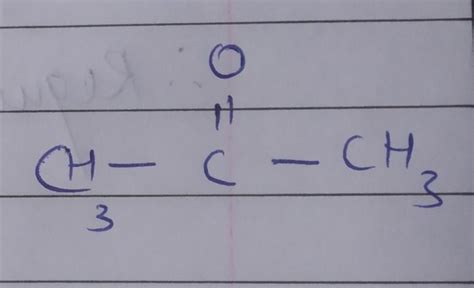 O
||
CH3 — C — CH3